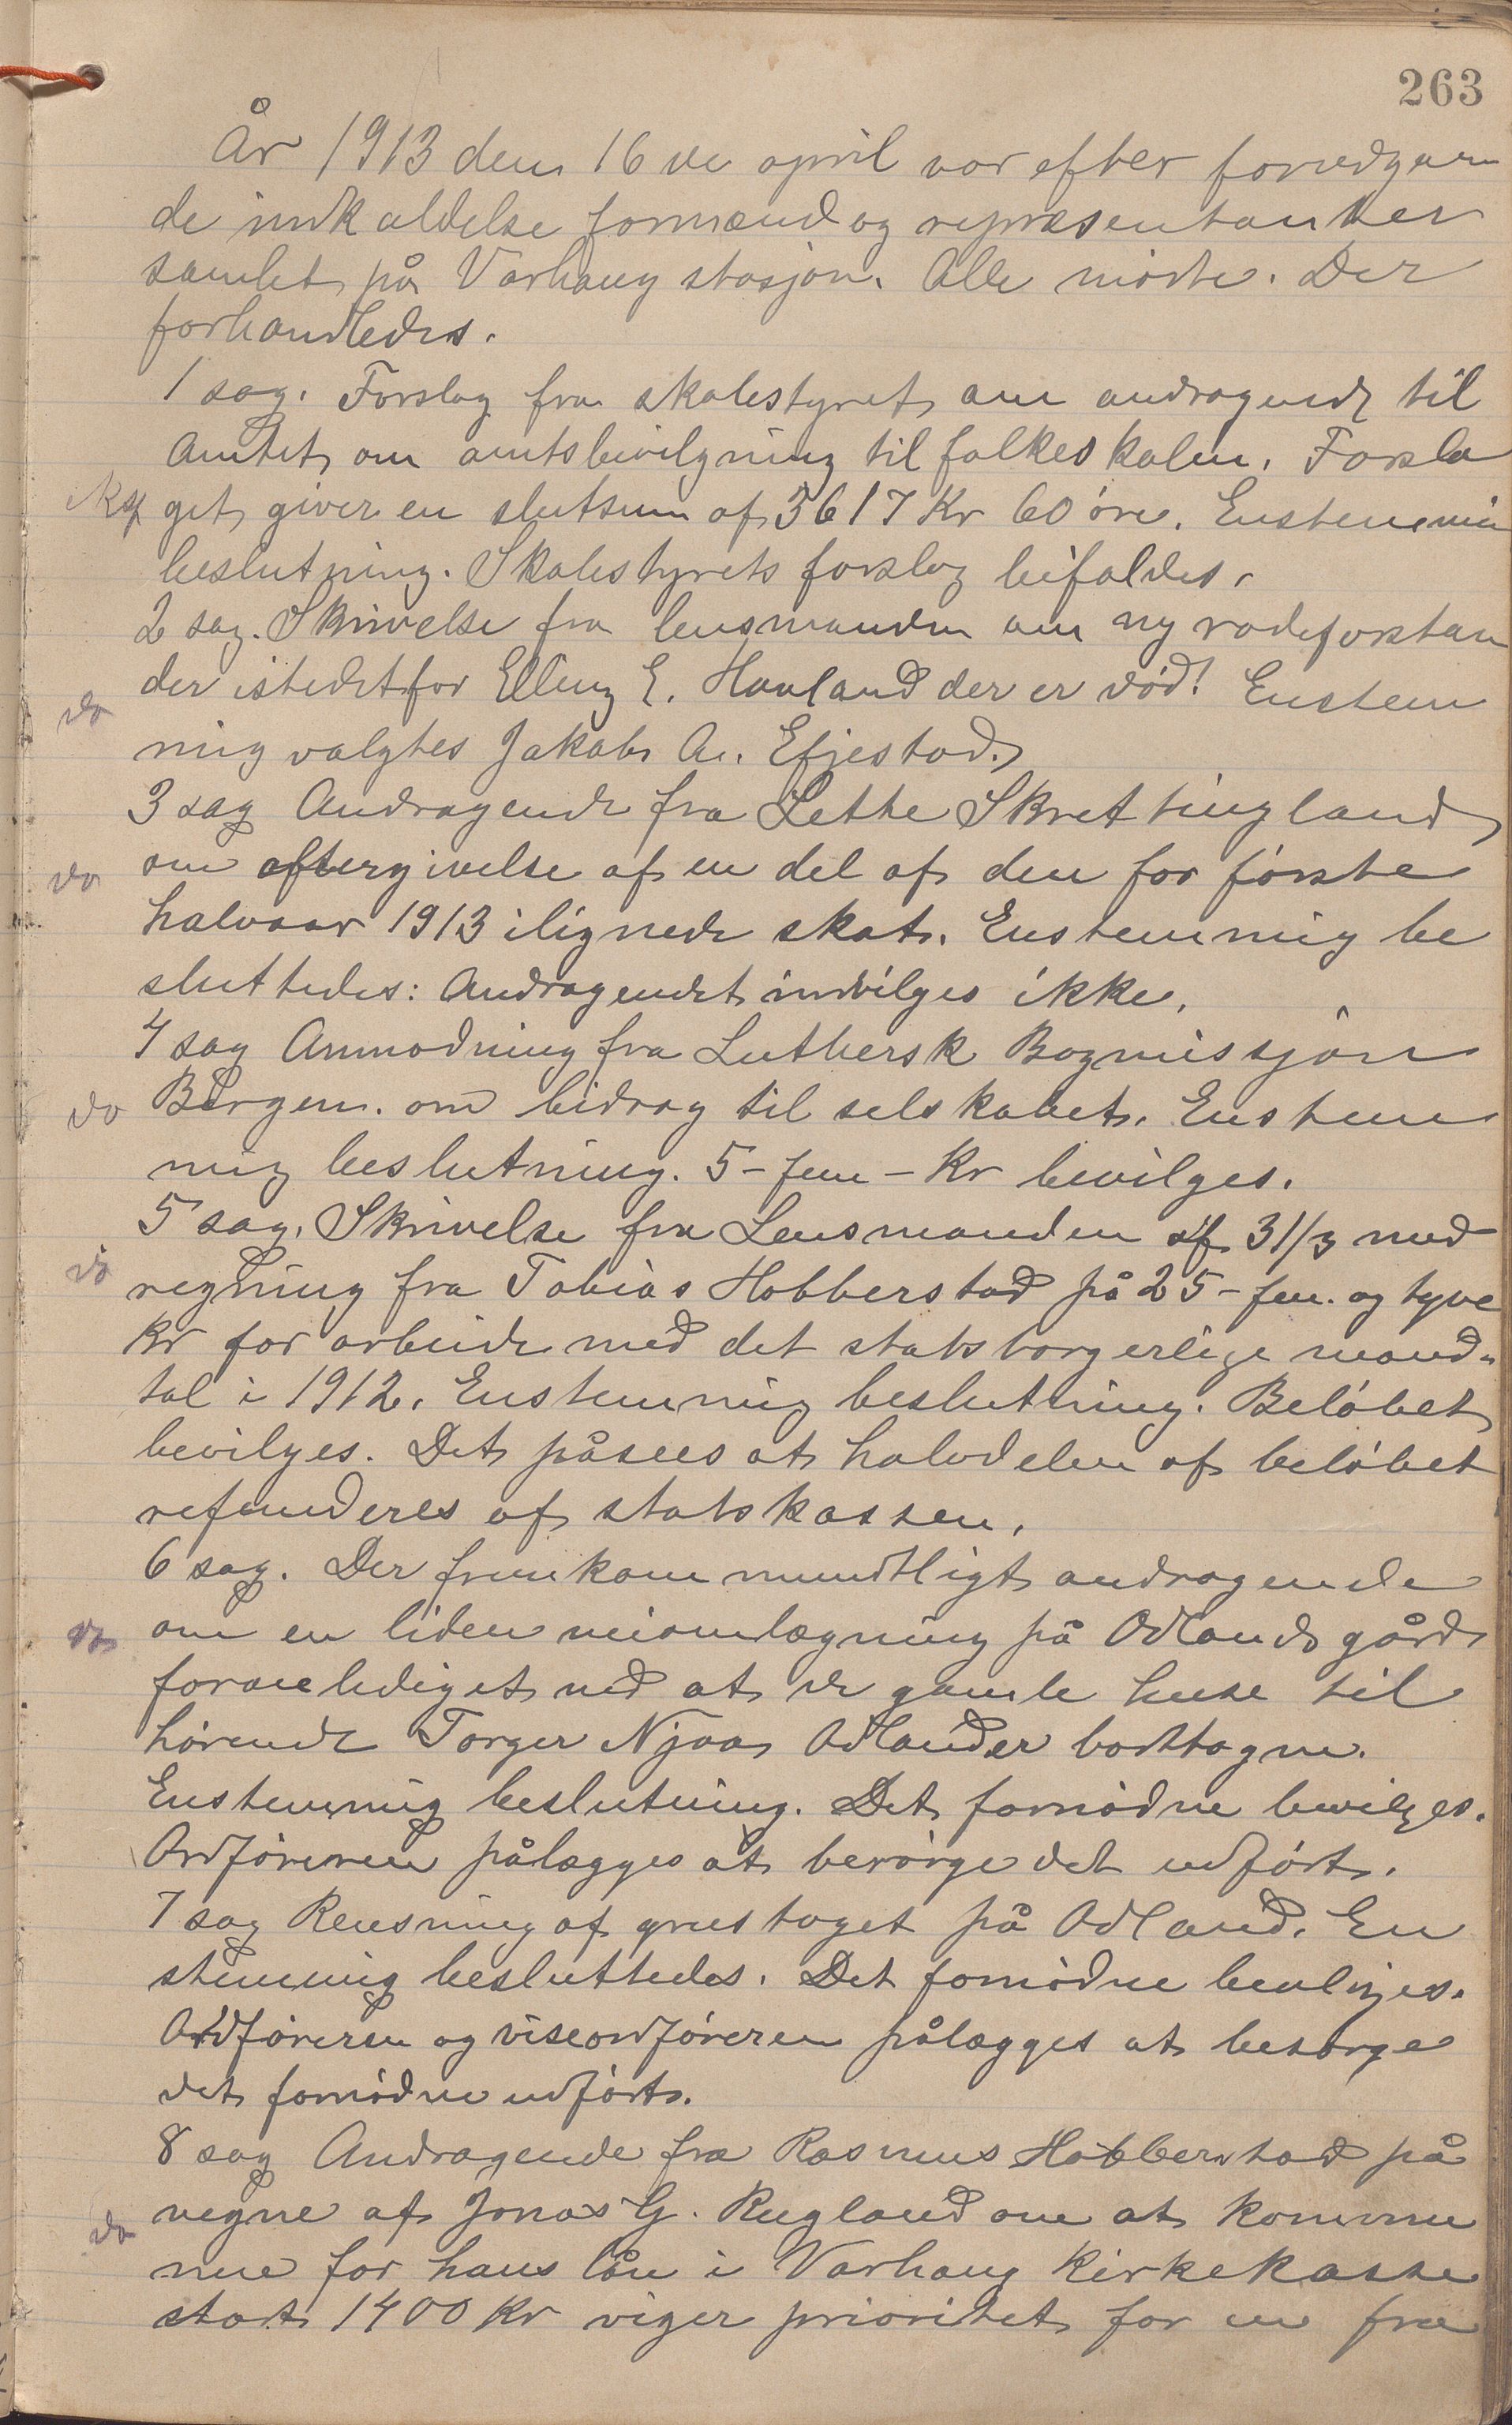 263
År 1913 den 16 de april var efter foredgaaen
de indkaldelse formænd og repræsentanter
samlet på Varhaug stasjon. Alle mødte. Der
forhandledes.
1 sag. Forslag fra skolestyret om andragende til
Amtet om amtsbevilgning til folkeskolen. Forsla
get giver en slutsum af 3617 Kr 60 øre. Enstemmig
beslutning. Skolestyrets forslag bifaldes.
2 sag. Skrivelse fra lensmanden om ny rodeforstan
do der istedetfor Elling E. Hauland der er død! Enstem
mig valgtes Jakob A. Efjestad.
3 sag Andragende fra Lethe Skrettingland
do om eftergivelse af en del af den for første
halvaar 1913 ilignede skat. Enstemmig be
sluttedes: Andragendet indvilges ikke.
4 sag Anmodning fra Luthersk Bogmissjon
do Bergen. om bidrag til selskabet. Enstem
mig beslutning. 5 - fem - Kr bevilges.
5 sag. Skrivelse fra Lensmanden af 31/3 med
do regning fra Tobias Hobberstad på 25 - fem og tyve
Kr for arbeide med det statsborgerlige mand-
tal i 1912. Enstemmig beslutning. Beløbet
bevilges. Det påsees at halvdelen af beløbet
refunderes af statskassen.
6 sag. Der fremkom mundtligt andragende
do om en liden veiomlægning på Odlands gård
foranlediget ved at de gamle huse til
hørende Torger Njaa Odland er borttagne.
Enstemmig beslutning. Det fornødne bevilges.
Ordføreren pålægges at besørge det udført.
7 sag Rensning af grustaget på Odland. En
stemmig besluttedes. Det fornødne bevilges.
Ordføreren og viseordføreren pålægges at besørge
det fornødne udført.
8 sag Andragende fra Rasmus Hobberstad på
do vegne af Jonas G. Rugland om at kommu
nne for hans lån i Varhaug Kirkekasse
stort 1400 Kr viger prioritet for en fra